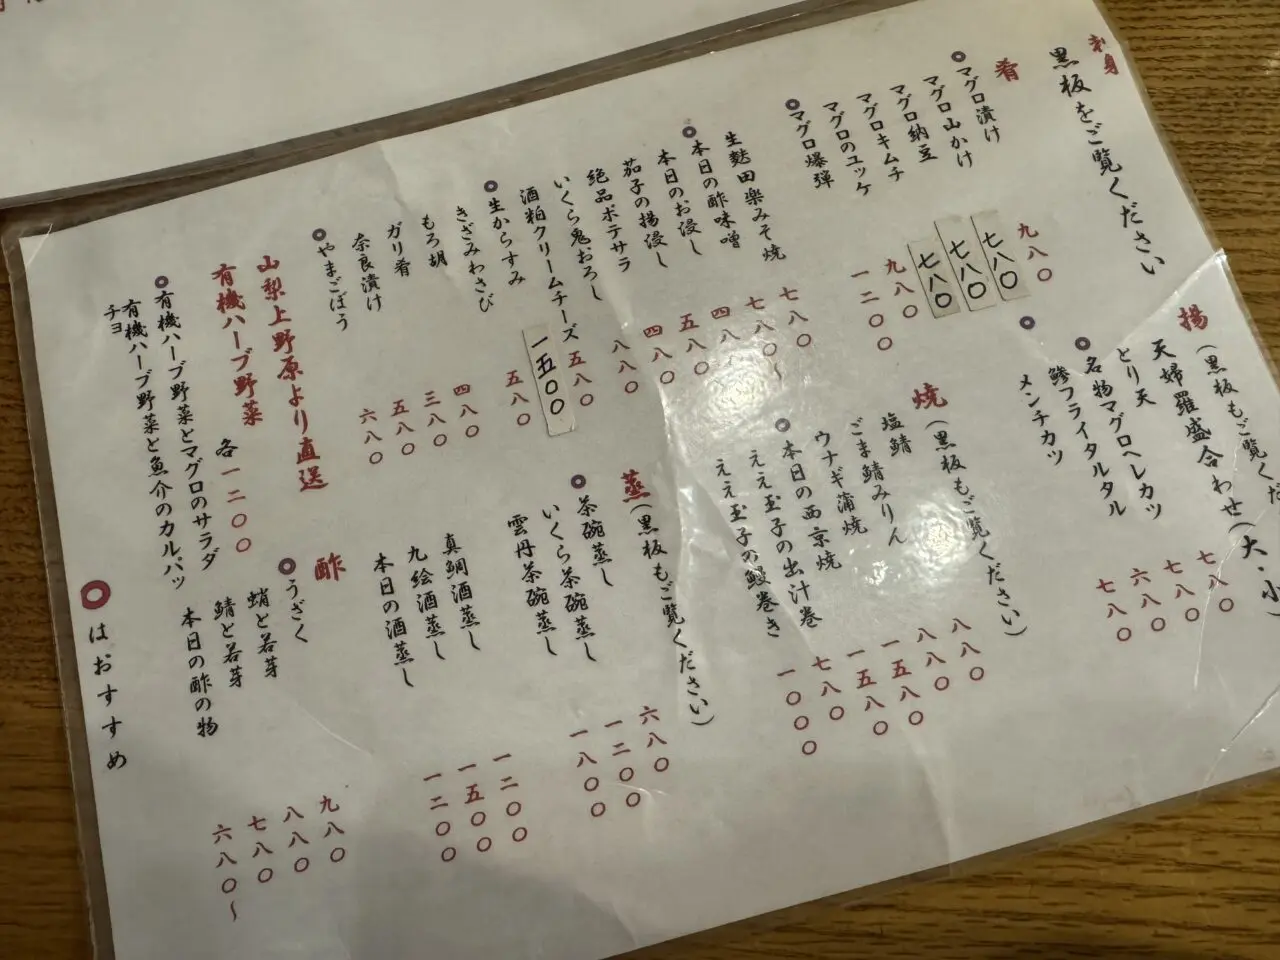 刺身
黒板をご覧ください
肴
マグロ漬け 九八〇
マグロ山かけ 七八〇
マグロ納豆 七八〇
マグロキムチ 七八〇
マグロのユッケ 九八〇
マグロ爆弾 一二〇〇
生麩田楽みそ焼 七八〇
本日の酢味噌 七八〇〜
本日のお浸し 四八〇
茄子の揚浸し 五八〇
絶品ポテサラ 四八〇
いくら鬼おろし 八八〇
酒粕クリームチーズ 五八〇
生からすみ 一五〇〇
きざみわさび 五八〇
もろ胡 四八〇
ガリ肴 三八〇
奈良漬け 五八〇
やまごぼう 六八〇
山梨上野原より直送
有機ハーブ野菜 各一二〇〇
有機ハーブ野菜とマグロのサラダ
有機ハーブ野菜と魚介のカルパッ
チョ
揚(黒板もご覧くだ
天婦羅盛合わせ(大・小)
とり天 七八〇
名物マグロヘレカツ 七八〇
鯵フライタルタル 六八〇
メンチカツ 七八〇
焼(黒板もご覧ください)
塩鯖 八八〇
ごま鯖みりん 八八〇
ウナギ蒲焼 一五八〇
本日の西京焼 一五八〇
ええ玉子の出汁巻 七八〇
ええ玉子の鰻巻き 一〇〇〇
蒸(黒板もご覧ください)
茶碗蒸し 六八〇
いくら茶碗蒸し 一二〇〇
雲丹茶碗蒸し 一八〇〇
真鯛酒蒸し 一二〇〇
九絵酒蒸し 一五〇〇
本日の酒蒸し 一二〇〇
酢
うざく 九八〇
蛸と若芽 八八〇
鯖と若芽 七八〇
本日の酢の物 六八〇〜
◎はおすすめ